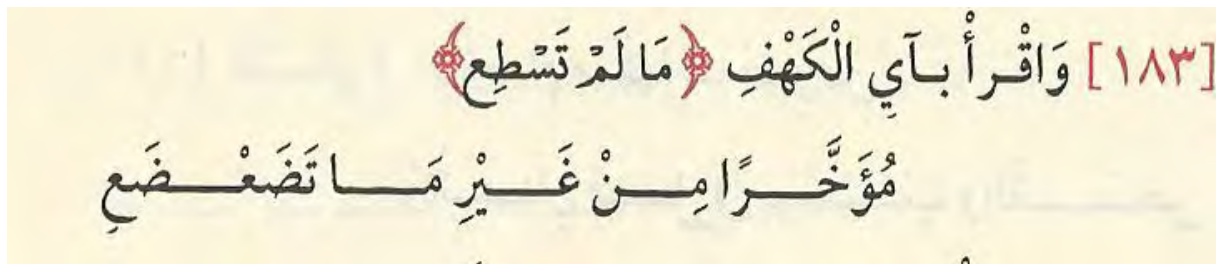 [١٨٣] وَاقْرأْ بآيِ الْكَهْفِ ﴿مَا لَمْ تَسْطِع﴾
مُؤَخَّرًا مِنْ غَيْرِ مَا تَضَعْضَعِ